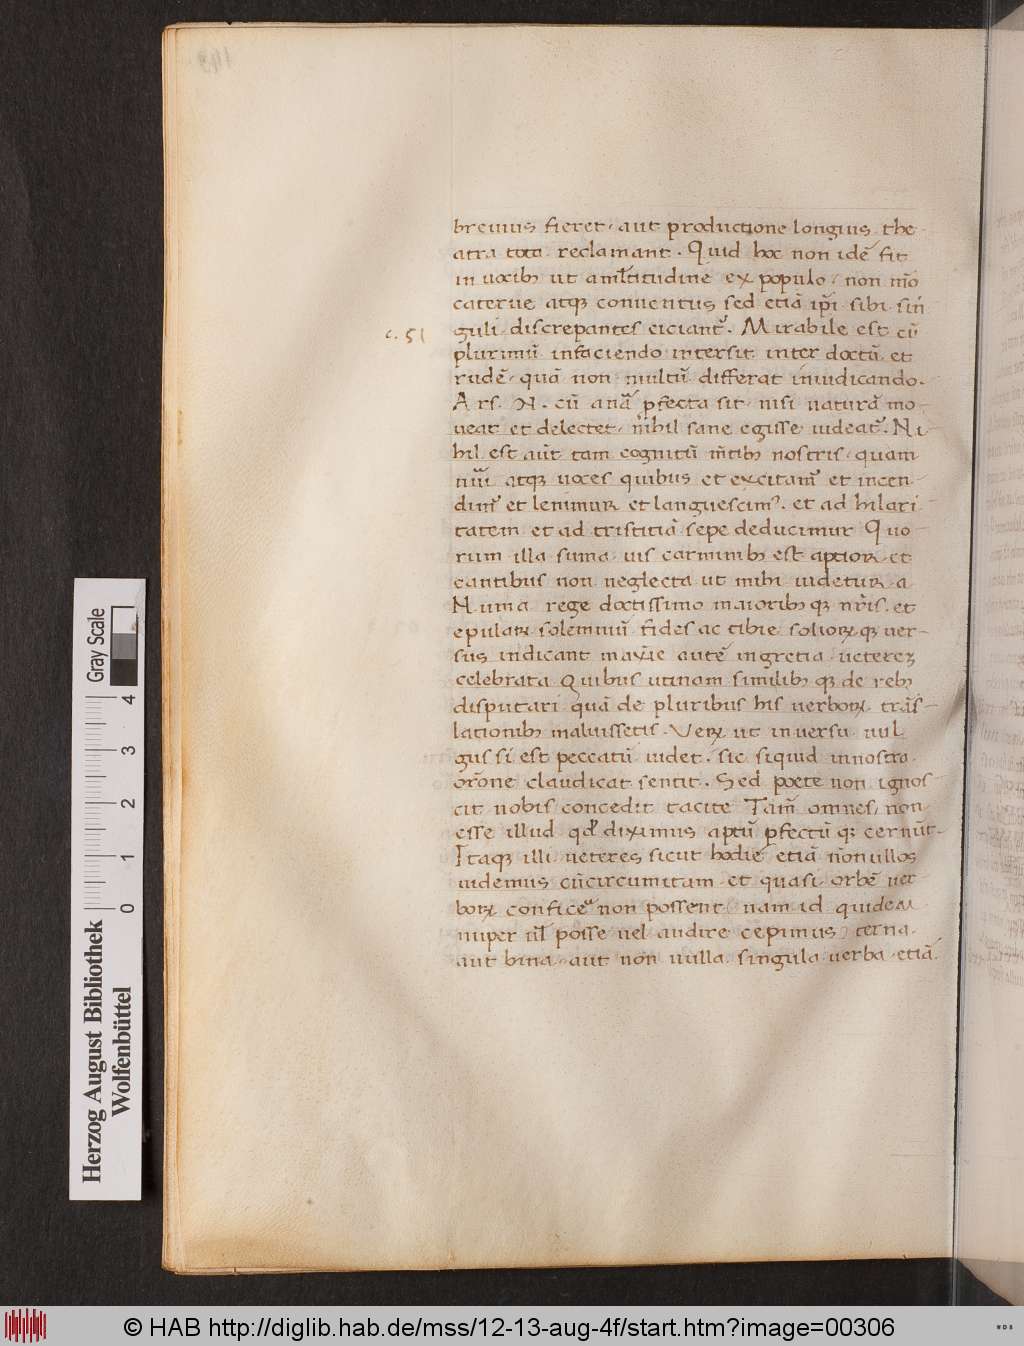 143
brevius fieret, aut productione longius. the
atra tota reclamant. Quid hoc non idē fit
in vocib; ut a mltitudine ex populo, non mō
caterve atq; conventus sed etiā ip̄i sibi sin̄
c. 51
guli discrepantes eiciant᷑. Mirabile est cū
plurimū in faciendo intersit inter doctū et
rudē, quā non multū differat in iudicando.
Ars .N. cū a nā pfecta sit nisi naturā mo
veat et delectet, nihil sane egisse videat᷑. Ni
hil est aūt tam cognitū mentib; nostris quam
nūi atq; voces quibus et excitam᷑ et incen
dim᷑ et lenimur et languescim᷑. et ad hilari
tatem et ad tristitiā sepe deducimur Quo
rum illa suma vis carminib; est aptior et
cantibus non neglecta ut mihi videtur a
Numa rege doctissimo maiorib; q; nr̄is. et
epularꝝ solemniū fides ac tibie soliorꝝ q; ver
sus indicant maxīe autē in gretia veterez
celebrata Quibus utinam similib; q; de reb;
disputari quā de pluribus his verborꝝ trās
lationib; maluissetis. Verꝝ ut in versu vul
gus si est peccatū videt. sic siquid in nostro
orōne claudicat sentit. Sed poete non ignos
cit nobis concedit tacite Tam̄ omnes non
esse illud qd̄ diximus aptū pfectū q; cernūt
Itaq; illi veteres sicut hodie etiā nōnullos
videmus cū circumitam et quasi orbē ver
borꝝ conficē non possent nam id quidem
nuper vl̄ posse vel audire cepimus, terna
aut bina, aut non nulla singula verba etiā
Gray Scale
0 1 2 3 4
Herzog August Bibliothek
Wolfenbüttel
© HAB http://diglib.hab.de/mss/12-13-aug-4f/start.htm?image=00306